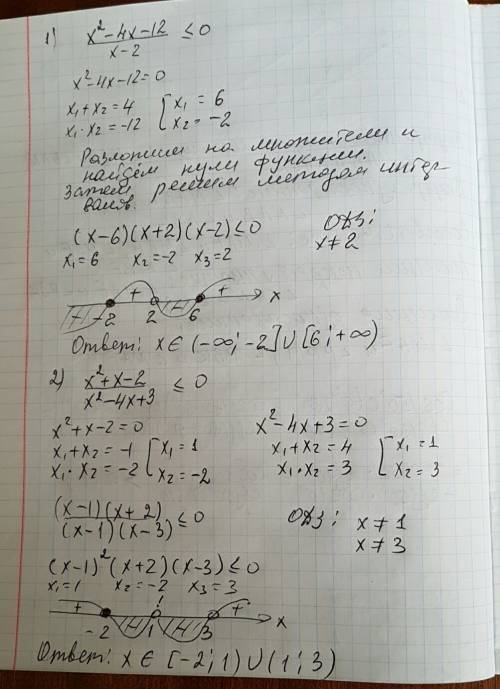 1) (x²-4x-12)/(x-2) ≤0
x²-4x-12=0
x₁+x₂=4 [x₁=6
x₁·x₂=-12 [x₂=-2
Разложим на множители и
найдём нули функции.
Затем решим методом интер-
валов.
(x-6)(x+2)(x-2)≤0 ОДЗ:
x₁=6 x₂=-2 x₃=2 x≠2
- + - + x
-2 2 6
Ответ: x∈(-∞;-2]∪[6;+∞)
2) (x²+x-2)/(x²-4x+3) ≤0
x²+x-2=0 x²-4x+3=0
x₁+x₂=-1 [x₁=1 x₁+x₂=4 [x₁=1
x₁·x₂=-2 [x₂=-2 x₁·x₂=3 [x₂=3
(x-1)(x+2)/(x-1)(x-3) ≤0 ОДЗ: x≠1
x≠3
(x-1)²(x+2)(x-3)≤0
x₁=1 x₂=-2 x₃=3
+ - ! - + x
-2 1 3
Ответ: x∈[-2;1)∪(1;3)